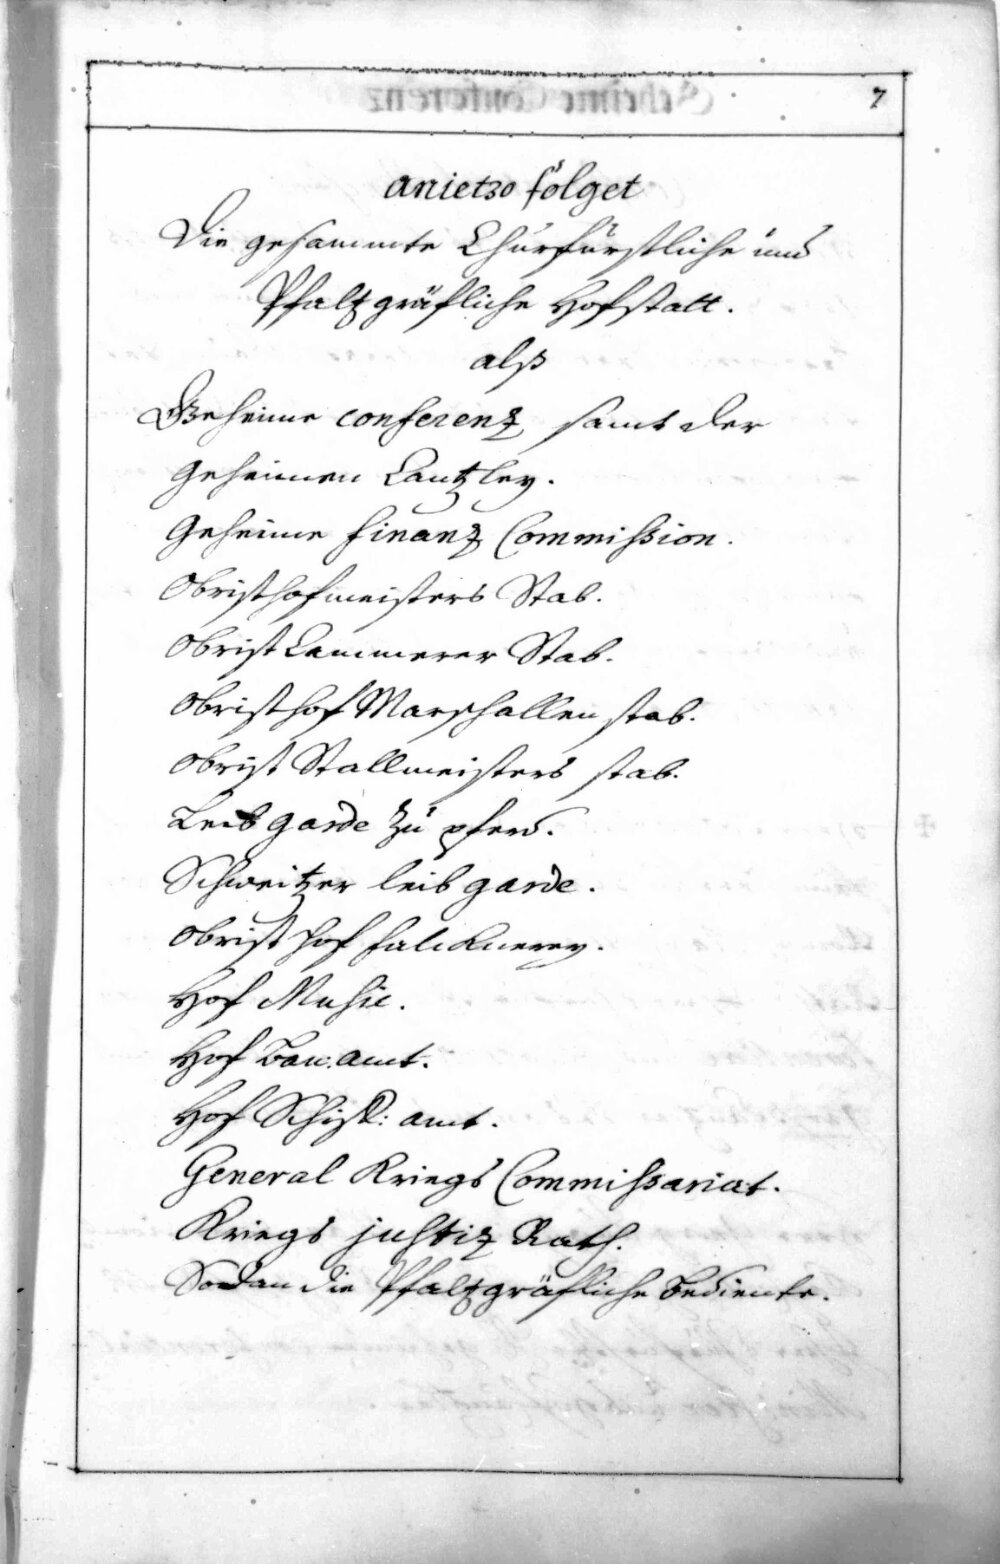 7
anietzo folget
Die gesammte Churfürstliche und
Pfaltzgräfliche Hofstatt.
alß
Geheime conferentz samt der
Geheimen Cantzley.
Geheime finantz Commission.
Obristhofmeisters Stab.
Obrist Cammerer Stab.
Obristhof Marschallen stab.
Obrist Stallmeisters stab.
Leib garde zu pferd.
Schweitzer leib garde.
Obrist hof falcknerey.
Hof Music.
Hof Bau: amt.
Hof amt.
General Kriegs Commissariat.
Kriegs justitz Rath.
Sodan die Pfaltzgräfliche bediente.